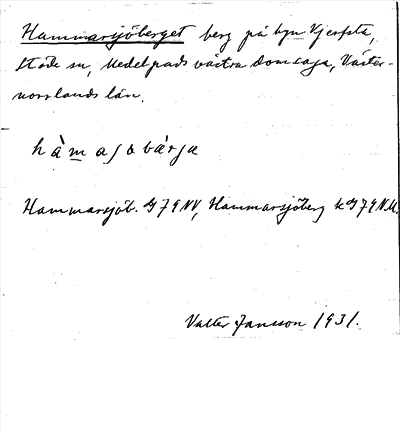 Hammarsjöberget berg på byn Vjerfsta,
Stöde sn, Medelpads västra domsaga, Väster-
norrlands län.
hàmaʃobárja
Hammarsjöb. G79NV, Hammarsjöberg k G79NV.
Valter Jansson 1931.